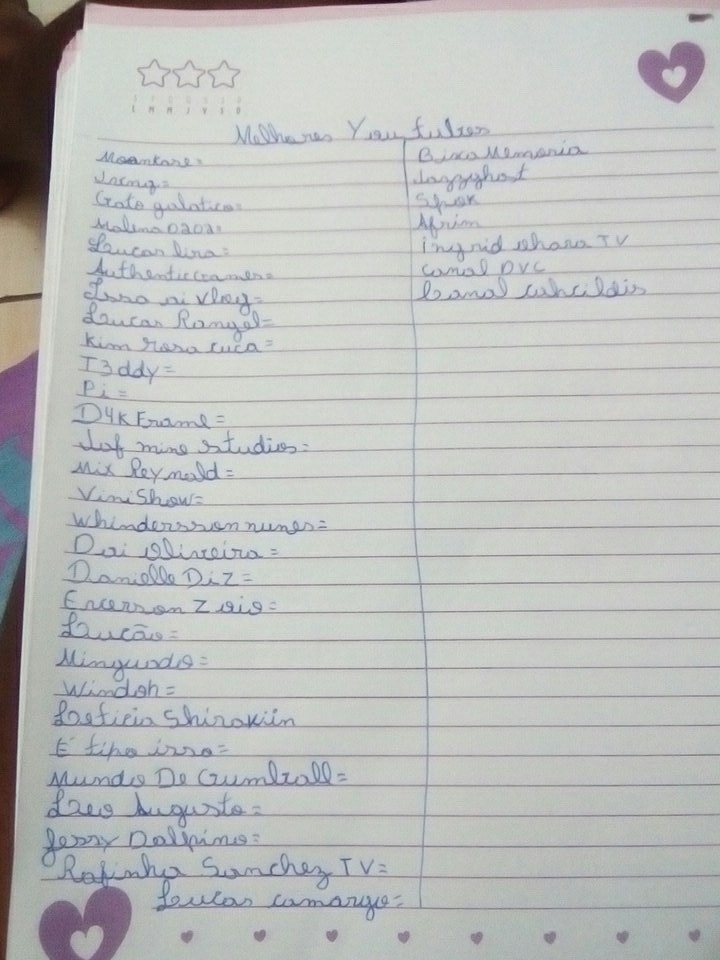 Melhores You tubers
Moontare=
Gato galatico=
Malena0202=
Lucas lira=
Authenticgames=
Isso ai vlog=
Lucas Rangel=
Kim rosa cuca=
T3ddy=
Pi=
D4KFrame=
mine studios=
Mix Reynold=
ViniShow=
Whinderssonnunes=
Dai Oliveira=
Danielle DiZ=
Everson Zoio=
Lucão=
Minguado=
Windoh=
Leticia Shirokiin
E tipo isso=
Mundo De Gumball=
Leo Augusto=
Jessy Dalpino=
Rafinha Sanchez TV=
Lucas camargo=
BixaMemoria
Jazzyghost
Spok
Afrim
ingrid ohara TV
canal DVC
Canal